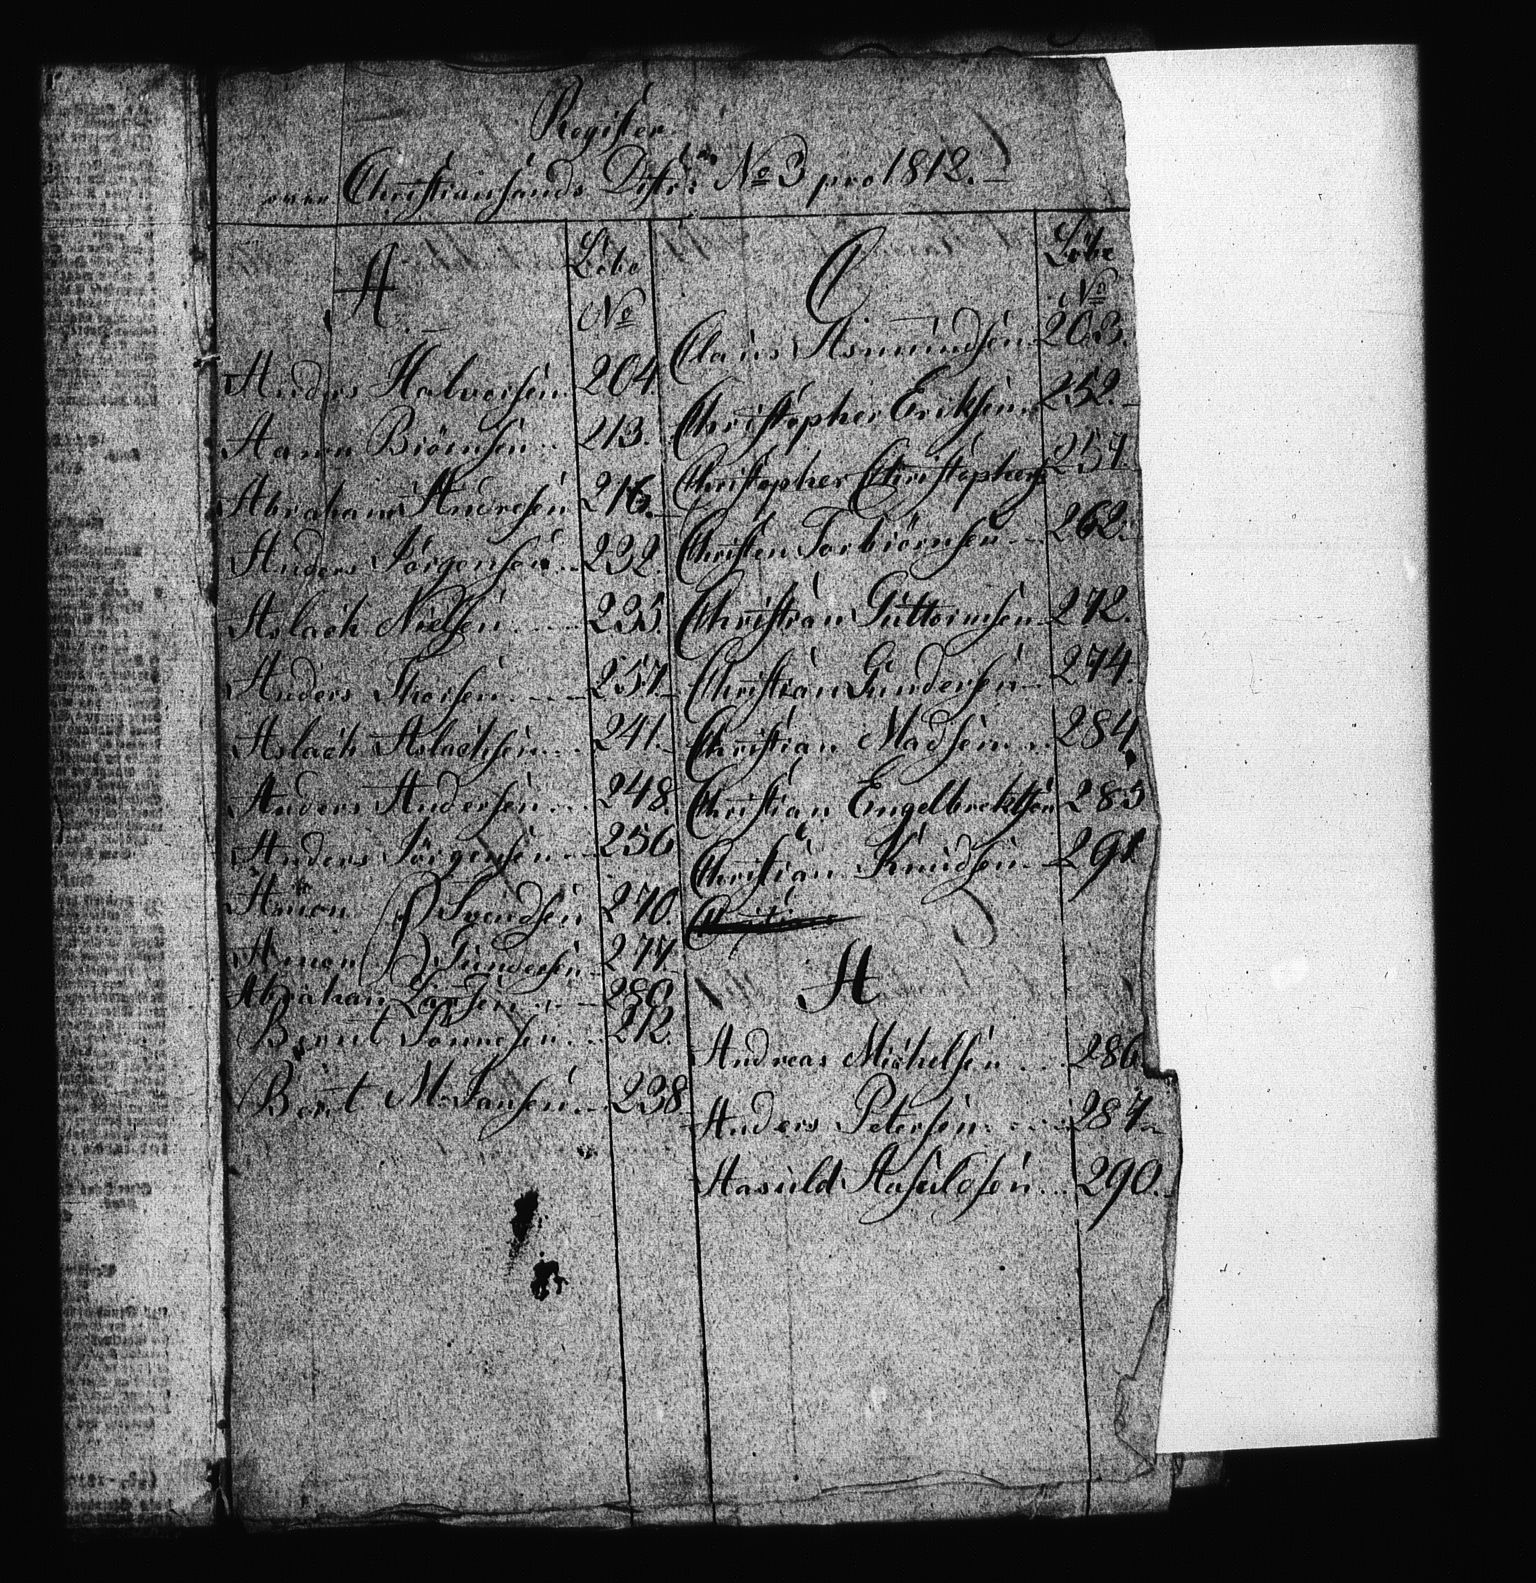 Register
over Christiansands Distr: No 3 pro 1812.
A.
Löbe
No
Anders Halvorsen 204.
Aanen Biörnsen 213.
Abraham Andresen 216.
Anders Jörgensen 232.
Aslach Nielsen 235.
Anders Thorsen 237.
Aslach Aslachsen 241.
Anders Andersen 248.
Anders Jörgensen 256
Amon Svendsen 270.
Amon Gundersen 277.
Abraham Larsen 280.
Bernt Tönnesen 212.
Bernt M. Jansen 238
C.
Löbe
No
Claus Asmundsen 203.
Christopher Eriksen 252.
Christopher Christophers 257
Christen Torbiörnsen 262.
Christian Guttormsen 272.
Christian Gundersen 274.
Christian Madsen 284
Christian Engelbrektsen 285
Christian Knudsen 291
A
Andreas Michelsen 286
Anders Petersen 287
Aasuld Aasuldsen 290.